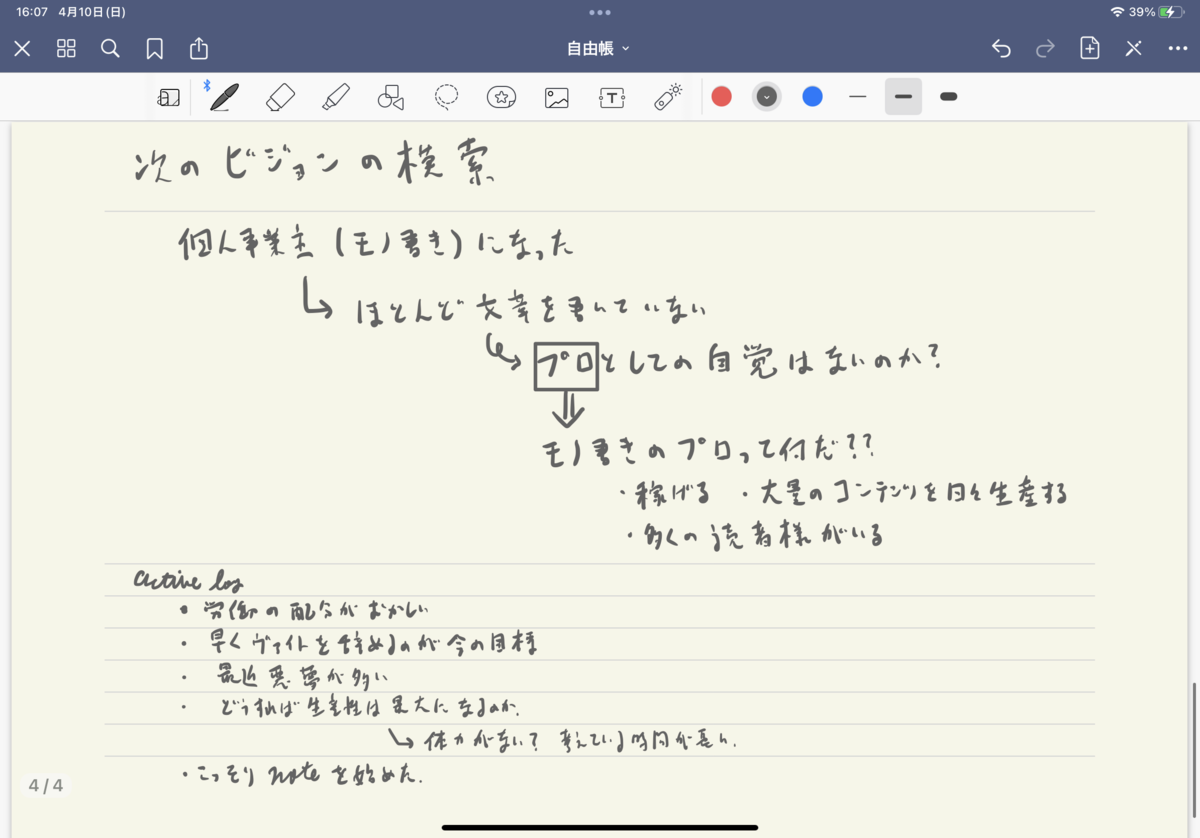 16:07 4月10日(日) 39%
自由帳
次のビジョンの模索
個人事業主(モノ書き)になった
ほとんど文章を書いていない
プロとしての自覚はないのか?
モノ書きのプロって何だ??
・稼げる ・大量のコンテンツを日々生産する
・多くの読者様がいる
active log
・労働の配分がおかしい
・早くヴァイトを辞めるのが今の目標
・最近悪夢が多い
・どうすれば生産性は最大になるのか。
体力がない? 考えている時間が長い。
・こっそりnoteを始めた。
4/4